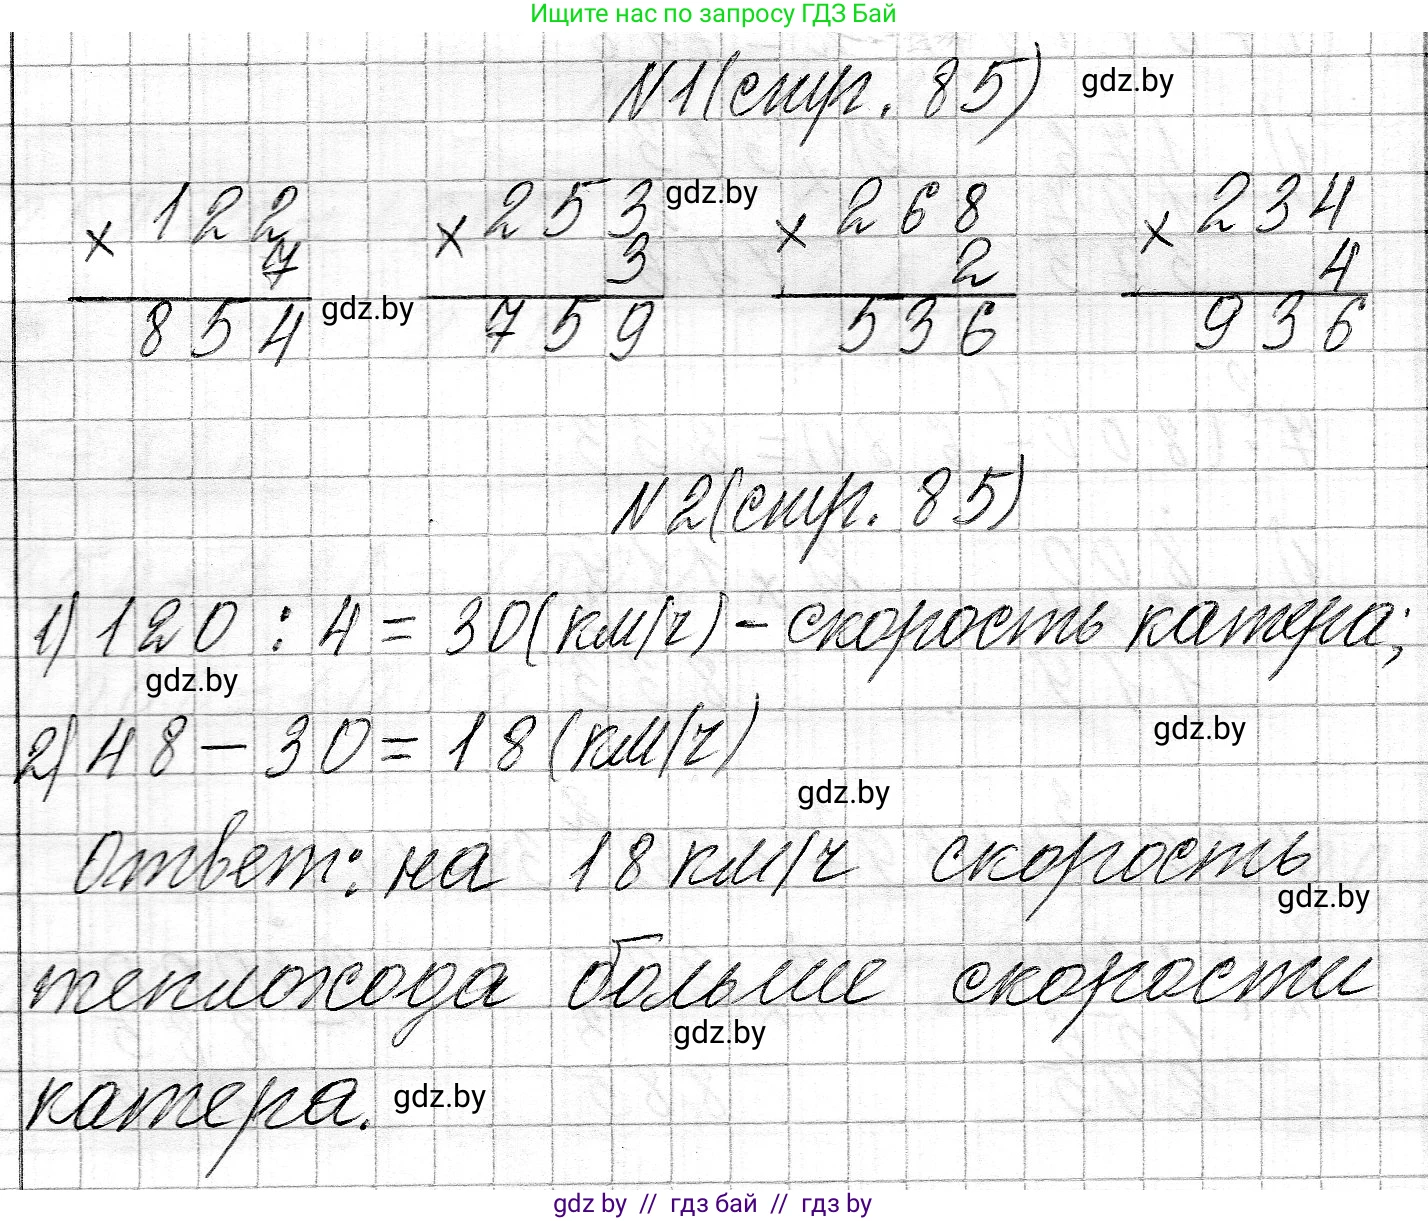 Ищите нас по запросу ГДЗ Бай
N1(стр. 85) gdz.by
× 122 × 253 gdz.by × 268 × 234
7 3 2 4
854 gdz.by 759 536 936
N2(стр. 85)
1) 120 : 4 = 30(км/ч) - скорость катера;
gdz.by
2) 48 - 30 = 18(км/ч) gdz.by
gdz.by
Ответ: на 18 км/ч скорость
gdz.by
теплохода больше скорости
gdz.by
катера. gdz.by
gdz by // гдз бай // гдз by